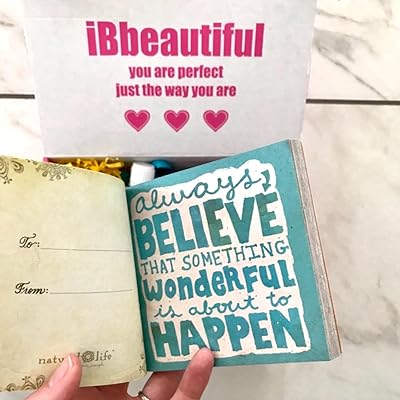 iBbeautiful
you are perfect
just the way you are
To:
From:
natural life
always
BELIEVE
THAT SOMETHING
WONDERFUL
is about to
HAPPEN